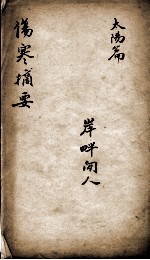 太陽篇
傷寒摘要
岸畔閒人